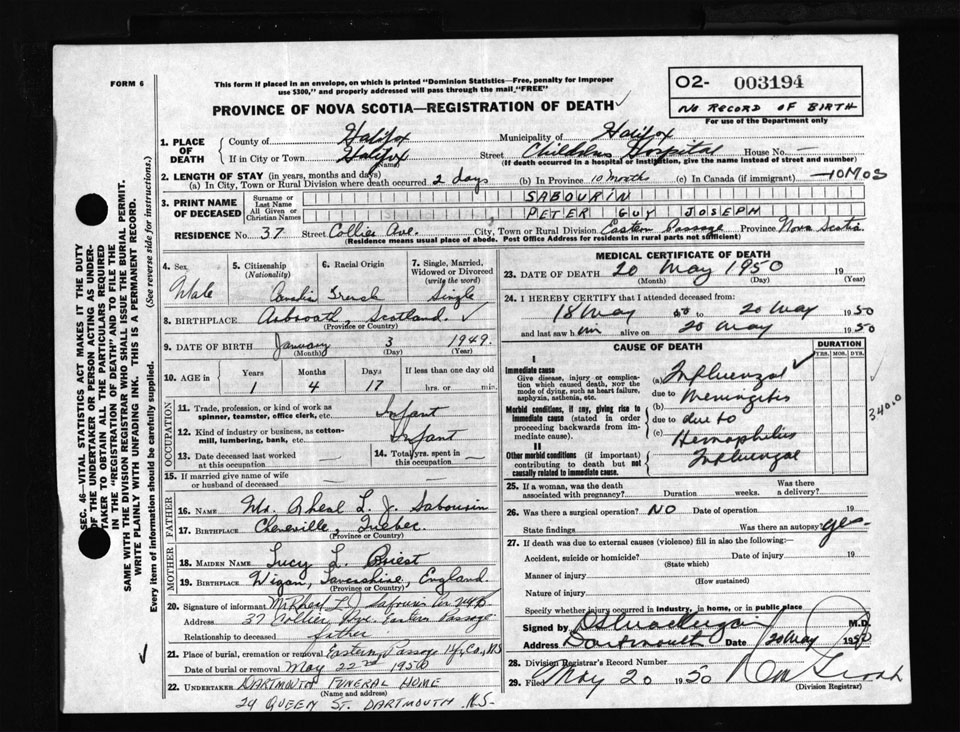 FORM 6
This form if placed in an envelope, on which is printed "Dominion Statistics—Free, penalty for improper
use $300," and properly addressed will pass through the mail "FREE"
O2- 003194
NO RECORD OF BIRTH
For use of the Department only
PROVINCE OF NOVA SCOTIA—REGISTRATION OF DEATH
1. PLACE OF DEATH
County of Halifax Municipality of Halifax
If in City or Town Halifax (Name) Street Childrens Hospital House No. —
(If death occurred in a hospital or institution, give the name instead of street and number)
2. LENGTH OF STAY (in years, months and days)
(a) In City, Town or Rural Division where death occurred 2 days (b) In Province 10 months (c) In Canada (if immigrant) 10 MOS
3. PRINT NAME OF DECEASED
Surname or Last Name SABOURIN
All Given or Christian Names PETER GUY JOSEPH
RESIDENCE No. 37 Street Collier Ave. City, Town or Rural Division Eastern Passage Province Nova Scotia
(Residence means usual place of abode. Post Office Address for residents in rural parts not sufficient)
4. Sex Male
5. Citizenship (Nationality)
6. Racial Origin French
7. Single, Married, Widowed or Divorced (write the word) Single
8. BIRTHPLACE Arbroath, Scotland.
(Province or Country)
9. DATE OF BIRTH January 3 1949.
(Month) (Day) (Year)
10. AGE in Years 1 Months 4 Days 17 If less than one day old hrs. or min.
OCCUPATION
11. Trade, profession, or kind of work as spinner, teamster, office clerk, etc. Infant
12. Kind of industry or business, as cotton-mill, lumbering, bank, etc. Infant
13. Date deceased last worked at this occupation —
14. Total yrs. spent in this occupation —
15. If married give name of wife or husband of deceased —
FATHER
16. NAME Mr. Rheal L. J. Sabourin
17. BIRTHPLACE Cheneville, Quebec.
(Province or Country)
MOTHER
18. MAIDEN NAME Lucy L. Priest
19. BIRTHPLACE Wigan, Lancashire, England.
(Province or Country)
20. Signature of informant Mr Rheal L. J. Sabourin
Address 37 Collier Ave. Eastern Passage
Relationship to deceased father
21. Place of burial, cremation or removal Eastern Passage Hfx. Co., N.S
Date of burial or removal May 22nd 1950
22. UNDERTAKER DARTMOUTH FUNERAL HOME
(Name and address)
29 QUEEN ST. DARTMOUTH N.S.
MEDICAL CERTIFICATE OF DEATH
23. DATE OF DEATH 20 May 1950 19
(Month) (Day) (Year)
24. I HEREBY CERTIFY that I attended deceased from:
18 May 50 to 20 May 1950
and last saw him alive on 20 May 1950
CAUSE OF DEATH
DURATION
YRS. MOS. DYS.
I
Immediate cause
Give disease, injury or complication which caused death, NOT the mode of dying, such as heart failure, asphyxia, asthenia, etc.
(a) Influenzal
due to Meningitis
Morbid conditions, if any, giving rise to immediate cause (stated in order proceeding backwards from immediate cause).
(b)
due to due to
(c) Hemophilus
II
Other morbid conditions (if important) contributing to death but not causally related to immediate cause.
Influenzal
340.0
25. If a woman, was the death associated with pregnancy? Duration weeks. Was there a delivery?
26. Was there a surgical operation? NO Date of operation 19
State findings Was there an autopsy? yes
27. If death was due to external causes (violence) fill in also the following:—
Accident, suicide or homicide? Date of injury 19
(State which)
Manner of injury
(How sustained)
Nature of injury
Specify whether injury occurred in industry, in home, or in public place
Signed by M.D.
Address Dartmouth Date 20 May 1950
28. Division Registrar's Record Number
29. Filed May 20 1950
(Division Registrar)
SEC. 46—VITAL STATISTICS ACT MAKES IT THE DUTY
OF THE UNDERTAKER OR PERSON ACTING AS UNDER-
TAKER TO OBTAIN ALL THE PARTICULARS REQUIRED
IN THE "REGISTRATION OF DEATH" AND TO FILE THE
SAME WITH THE DIVISION REGISTRAR WHO SHALL ISSUE THE BURIAL PERMIT.
WRITE PLAINLY WITH UNFADING INK. THIS IS A PERMANENT RECORD.
Every item of information should be carefully supplied. (See reverse side for instructions.)